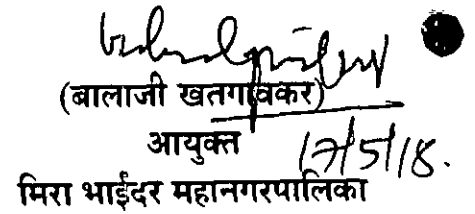 (बालाजी खतगांवकर)
आयुक्त
17/5/18.
मिरा भाईंदर महानगरपालिका